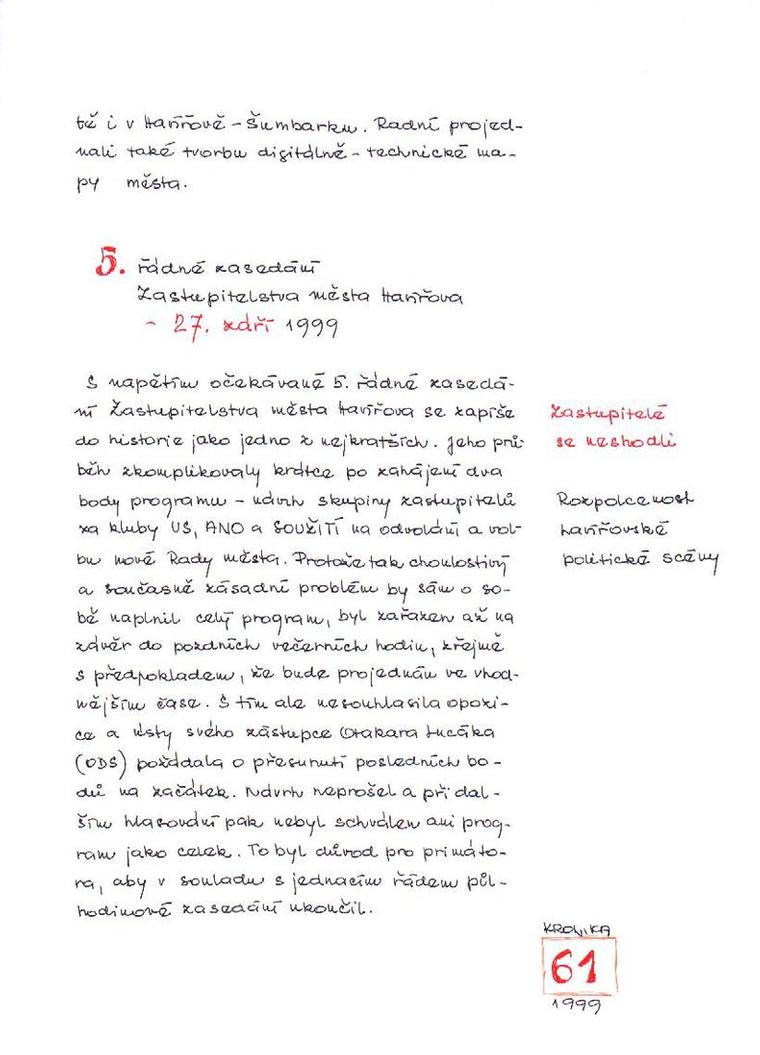 tě i v Havířově - Šumbarku. Radní projed-
nali také tvorbu digitálně - technické ma-
py města.
5. řádné zasedání
Zastupitelstva města Havířova
- 27. září 1999
S napětím očekávané 5. řádné zasedá-
ní Zastupitelstva města Havířova se zapíše
do historie jako jedno z nejkratších. Jeho prů-
běh zkomplikovaly krátce po zahájení dva
body programu - návrh skupiny zastupitelů
za kluby US, ANO a SOUŽITÍ na odvolání a vol-
bu nové Rady města. Protože tak choulostivý
a současně zásadní problém by sám o so-
bě naplnil celý program, byl zařazen až na
závěr do pozdních večerních hodin, zřejmě
s předpokladem, že bude projednán ve vhod-
nějším čase. S tím ale nesouhlasila opozi-
ce a ústy svého zástupce Otakara Lucáka
(ODS) požádala o přesunutí posledních bo-
dů na začátek. Návrh neprošel a při dal-
ším hlasování pak nebyl schválen ani prog-
ram jako celek. To byl důvod pro primáto-
ra, aby v souladu s jednacím řádem půl-
hodinové zasedání ukončil.
Zastupitelé
se neshodli
Rozpolcenost
havířovské
politické scény
KRONIKA
61
1999